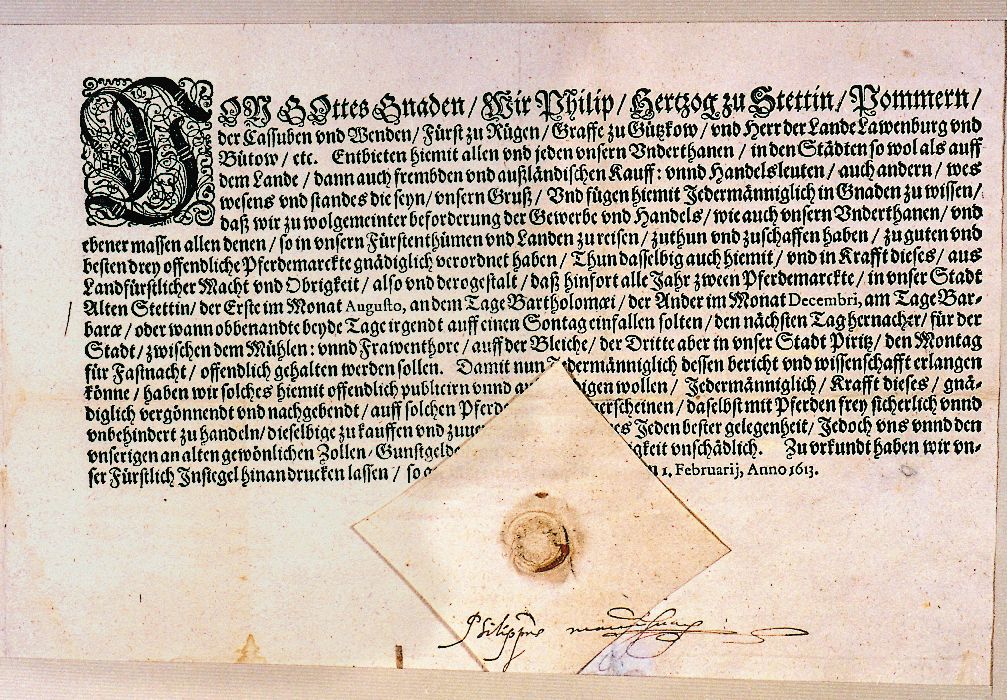 VON GOttes Gnaden / Wir Philip / Hertzog zu Stettin / Pommern /
der Cassuben vnd Wenden / Fürst zu Rügen / Graffe zu Gützkow / vnd Herr der Lande Lawenburg vnd
Bütow / etc. Entbieten hiemit allen vnd jeden vnsern Vnderthanen / in den Städten so wol als auff
dem Lande / dann auch frembden vnd außländischen Kauff: vnnd Handelsleuten / auch andern / wes
wesens vnd standes die seyn / vnsern Gruß / Vnd fügen hiemit Jedermänniglich in Gnaden zu wissen /
daß wir zu wolgemeinter beforderung der Gewerbe vnd Handels / wie auch vnsern Vnderthanen / vnd
ebener massen allen denen / so in vnsern Fürstenthümen vnd Landen zu reisen / zuthun vnd zuschaffen haben / zu guten vnd
besten drey offendliche Pferdemarckte gnädiglich verordnet haben / Thun dasselbig auch hiemit / vnd in Krafft dieses / aus
Landfürstlicher Macht vnd Obrigkeit / also vnd derogestalt / daß hinfort alle Jahr zween Pferdemarckte / in vnser Stadt
Alten Stettin / der Erste im Monat Augusto, an dem Tage Bartholomæi / der Ander im Monat Decembri, am Tage Bar-
baræ / oder wann obbenandte beyde Tage irgendt auff einen Sontag einfallen solten / den nächsten Tag hernacher / für der
Stadt / zwischen dem Mühlen: vnnd Frawenthore / auff der Bleiche / der Dritte aber in vnser Stadt Piritz / den Montag
für Fastnacht / offendlich gehalten werden sollen. Damit nun Jedermänniglich dessen bericht vnd wissenschafft erlangen
könne / haben wir solches hiemit offendlich publicirn vnnd igen wollen / Jedermänniglich / Krafft dieses / gnä-
diglich vergönnendt vnd nachgebendt / auff solchen Pferd erscheinen / daselbst mit Pferden frey sicherlich vnnd
vnbehindert zu handeln / dieselbige zu kauffen vnd es Jeden bester gelegenheit / Jedoch vns vnnd den
vnserigen an alten gewönlichen Zollen, Gunstgelde gkeit vnschädlich. Zu vrkundt haben wir vn-
ser Fürstlich Insiegel hinan drucken lassen / so 1. Februarij, Anno 1613.
Philippus